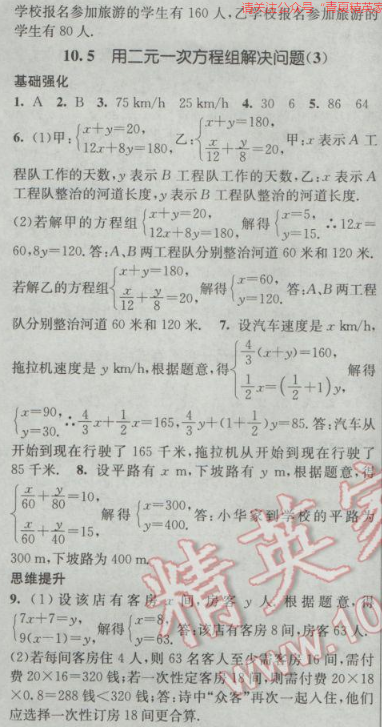 请关注公众号"青夏精英家
学校报名参加旅游的学生有 160 人,乙学校报名参加旅游的
学生有 80 人.
10.5 用二元一次方程组解决问题(3)
基础强化
1. A 2. B 3. 75 km/h 25 km/h 4. 30 6 5. 86 64
6. (1)甲:{x+y=20, 12x+8y=180, 乙:{x+y=180, x/12+y/8=20, 甲:x 表示 A 工
程队工作的天数,y 表示 B 工程队工作的天数,乙:x 表示 A
工程队整治的河道长度,y 表示 B 工程队整治的河道长度.
(2)若解甲的方程组{x+y=20, 12x+8y=180, 解得{x=5, y=15. ∴12x=
60,8y=120. 答:A、B 两工程队分别整治河道 60 米和 120 米.
若解乙的方程组{x+y=180, x/12+y/8=20, 解得{x=60, y=120. 答:A、B 两工程
队分别整治河道 60 米和 120 米. 7. 设汽车速度是 x km/h,
拖拉机速度是 y km/h,根据题意,得{4/3(x+y)=160, 1/2x=(1/2+1)y, 解得
{x=90, y=30. ∴4/3x+1/2x=165,4/3y+(1+1/2)y=85. 答:汽车从
开始到现在行驶了 165 千米,拖拉机从开始到现在行驶了
85 千米. 8. 设平路有 x m,下坡路有 y m,根据题意,得
{x/60+y/80=10, x/60+y/40=15, 解得{x=300, y=400. 答:小华家到学校的平路为
300 m,下坡路为 400 m.
思维提升
9. (1)设该店有客房 x 间,房客 y 人.根据题意,得
{7x+7=y, 9(x-1)=y, 解得{x=8, y=63. 答:该店有客房 8 间,房客 63 人.
(2)若每间客房住 4 人,则 63 名客人至少需客房 16 间,需付
费 20×16=320 钱;若一次性定客房 18 间,则需付费 20×18
×0.8=288 钱<320 钱;答:诗中"众客"再次一起入住,他们
应选择一次性订房 18 间更合算.